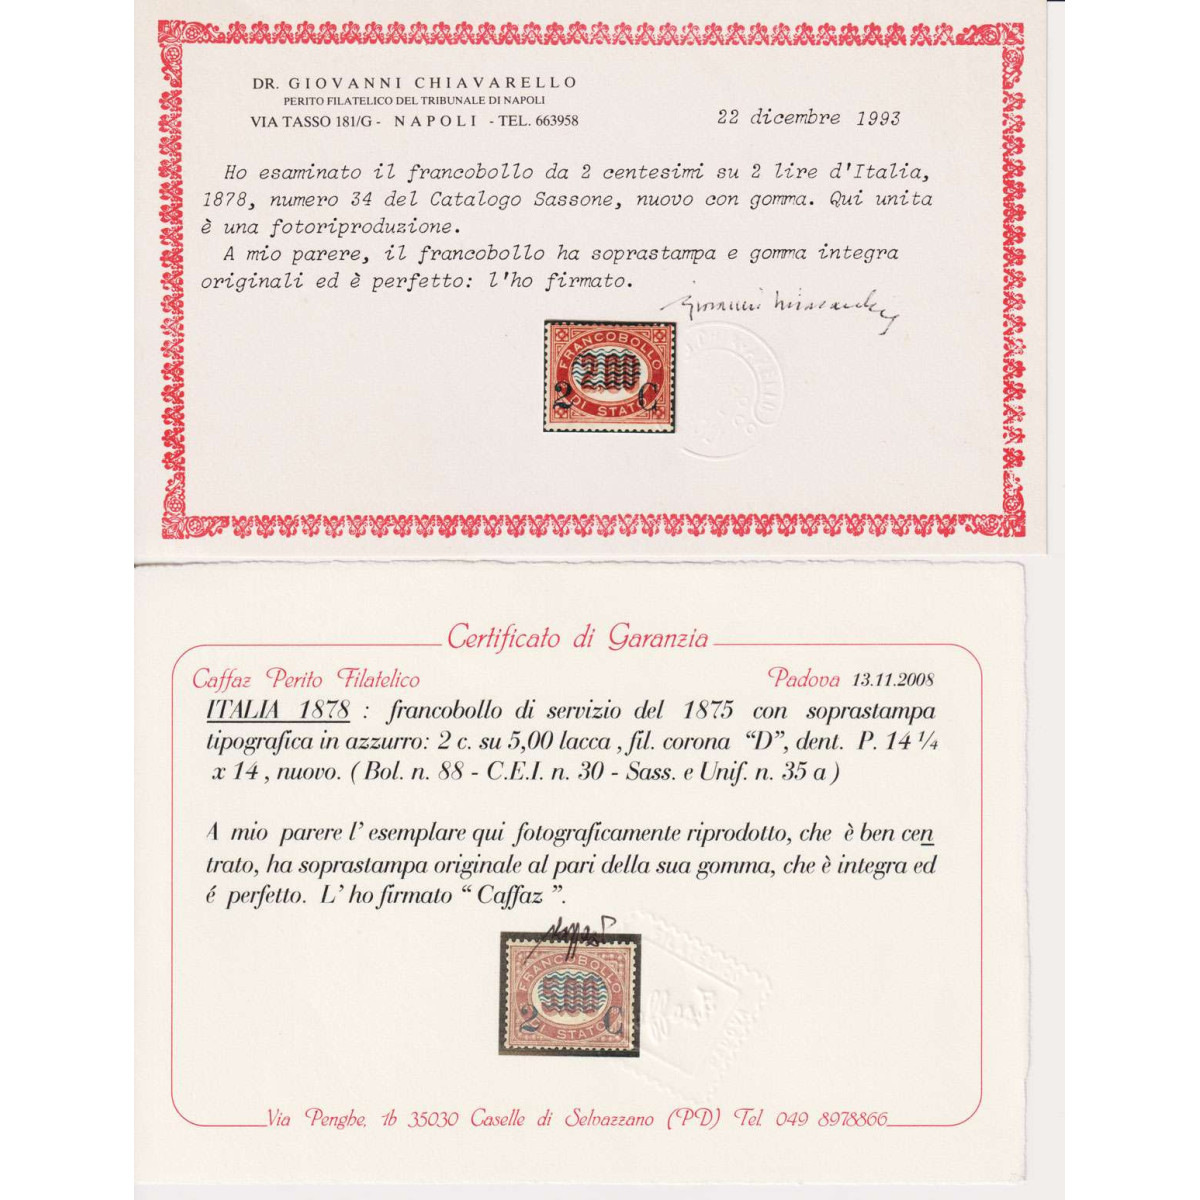 DR. GIOVANNI CHIAVARELLO
PERITO FILATELICO DEL TRIBUNALE DI NAPOLI
VIA TASSO 181/G - NAPOLI - TEL. 663958
22 dicembre 1993
Ho esaminato il francobollo da 2 centesimi su 2 lire d'Italia,
1878, numero 34 del Catalogo Sassone, nuovo con gomma. Qui unita
è una fotoriproduzione.
A mio parere, il francobollo ha soprastampa e gomma integra
originali ed è perfetto: l'ho firmato.
FRANCOBOLLO
2.00
2 C
DI STATO
Certificato di Garanzia
Caffaz Perito Filatelico
Padova 13.11.2008
ITALIA 1878 : francobollo di servizio del 1875 con soprastampa
tipografica in azzurro: 2 c. su 5,00 lacca , fil. corona “D”, dent. P. 14 ¼
x 14 , nuovo. ( Bol. n. 88 - C.E.I. n. 30 - Sass. e Unif. n. 35 a )
A mio parere l’ esemplare qui fotograficamente riprodotto, che è ben cen
trato, ha soprastampa originale al pari della sua gomma, che è integra ed
é perfetto. L’ ho firmato “ Caffaz ”.
FRANCOBOLLO
5.00
2 C
DI STATO
Via Penghe, 1b 35030 Caselle di Selvazzano (PD) Tel. 049 8978866